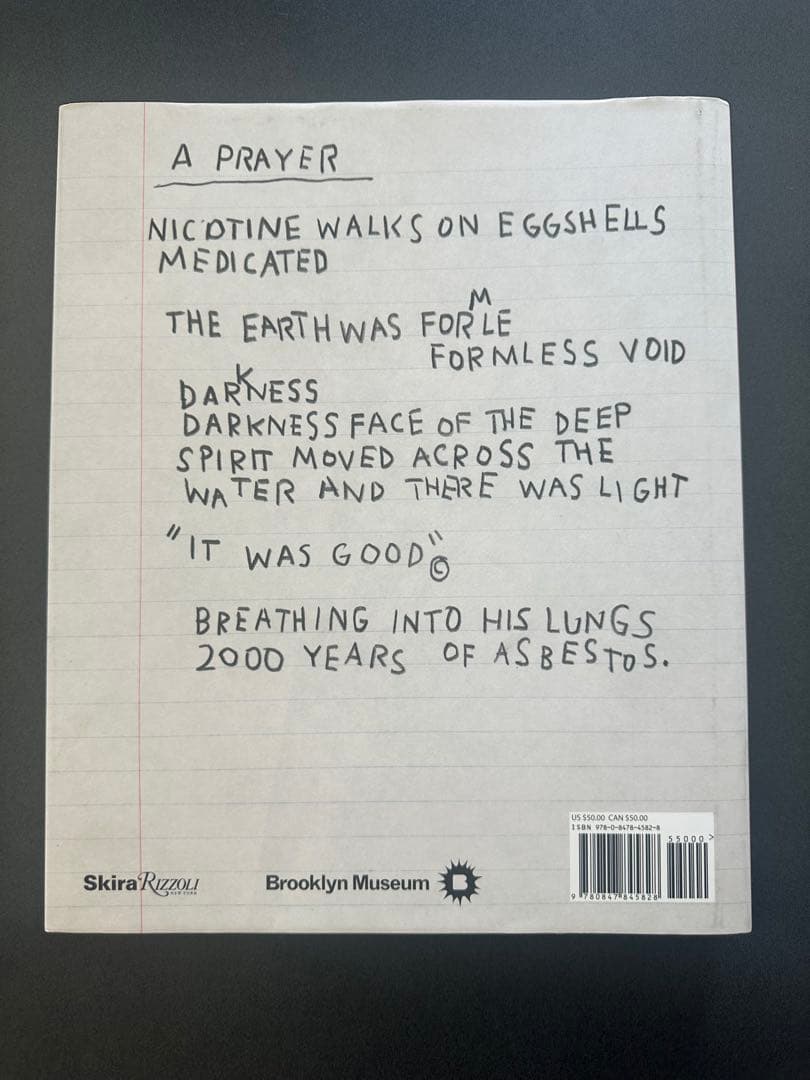 A PRAYER
NICOTINE WALKS ON EGGSHELLS
MEDICATED
M
THE EARTH WAS FORLE
FORMLESS VOID
DARKNESS
DARKNESS FACE OF THE DEEP
SPIRIT MOVED ACROSS THE
WATER AND THERE WAS LIGHT
"IT WAS GOOD"©
BREATHING INTO HIS LUNGS
2000 YEARS OF ASBESTOS.
US $50.00 CAN $50.00
ISBN 978-0-8478-4582-8
55000>
9 780847 845828
Skira RIZZOLI
NEW YORK
Brooklyn Museum B